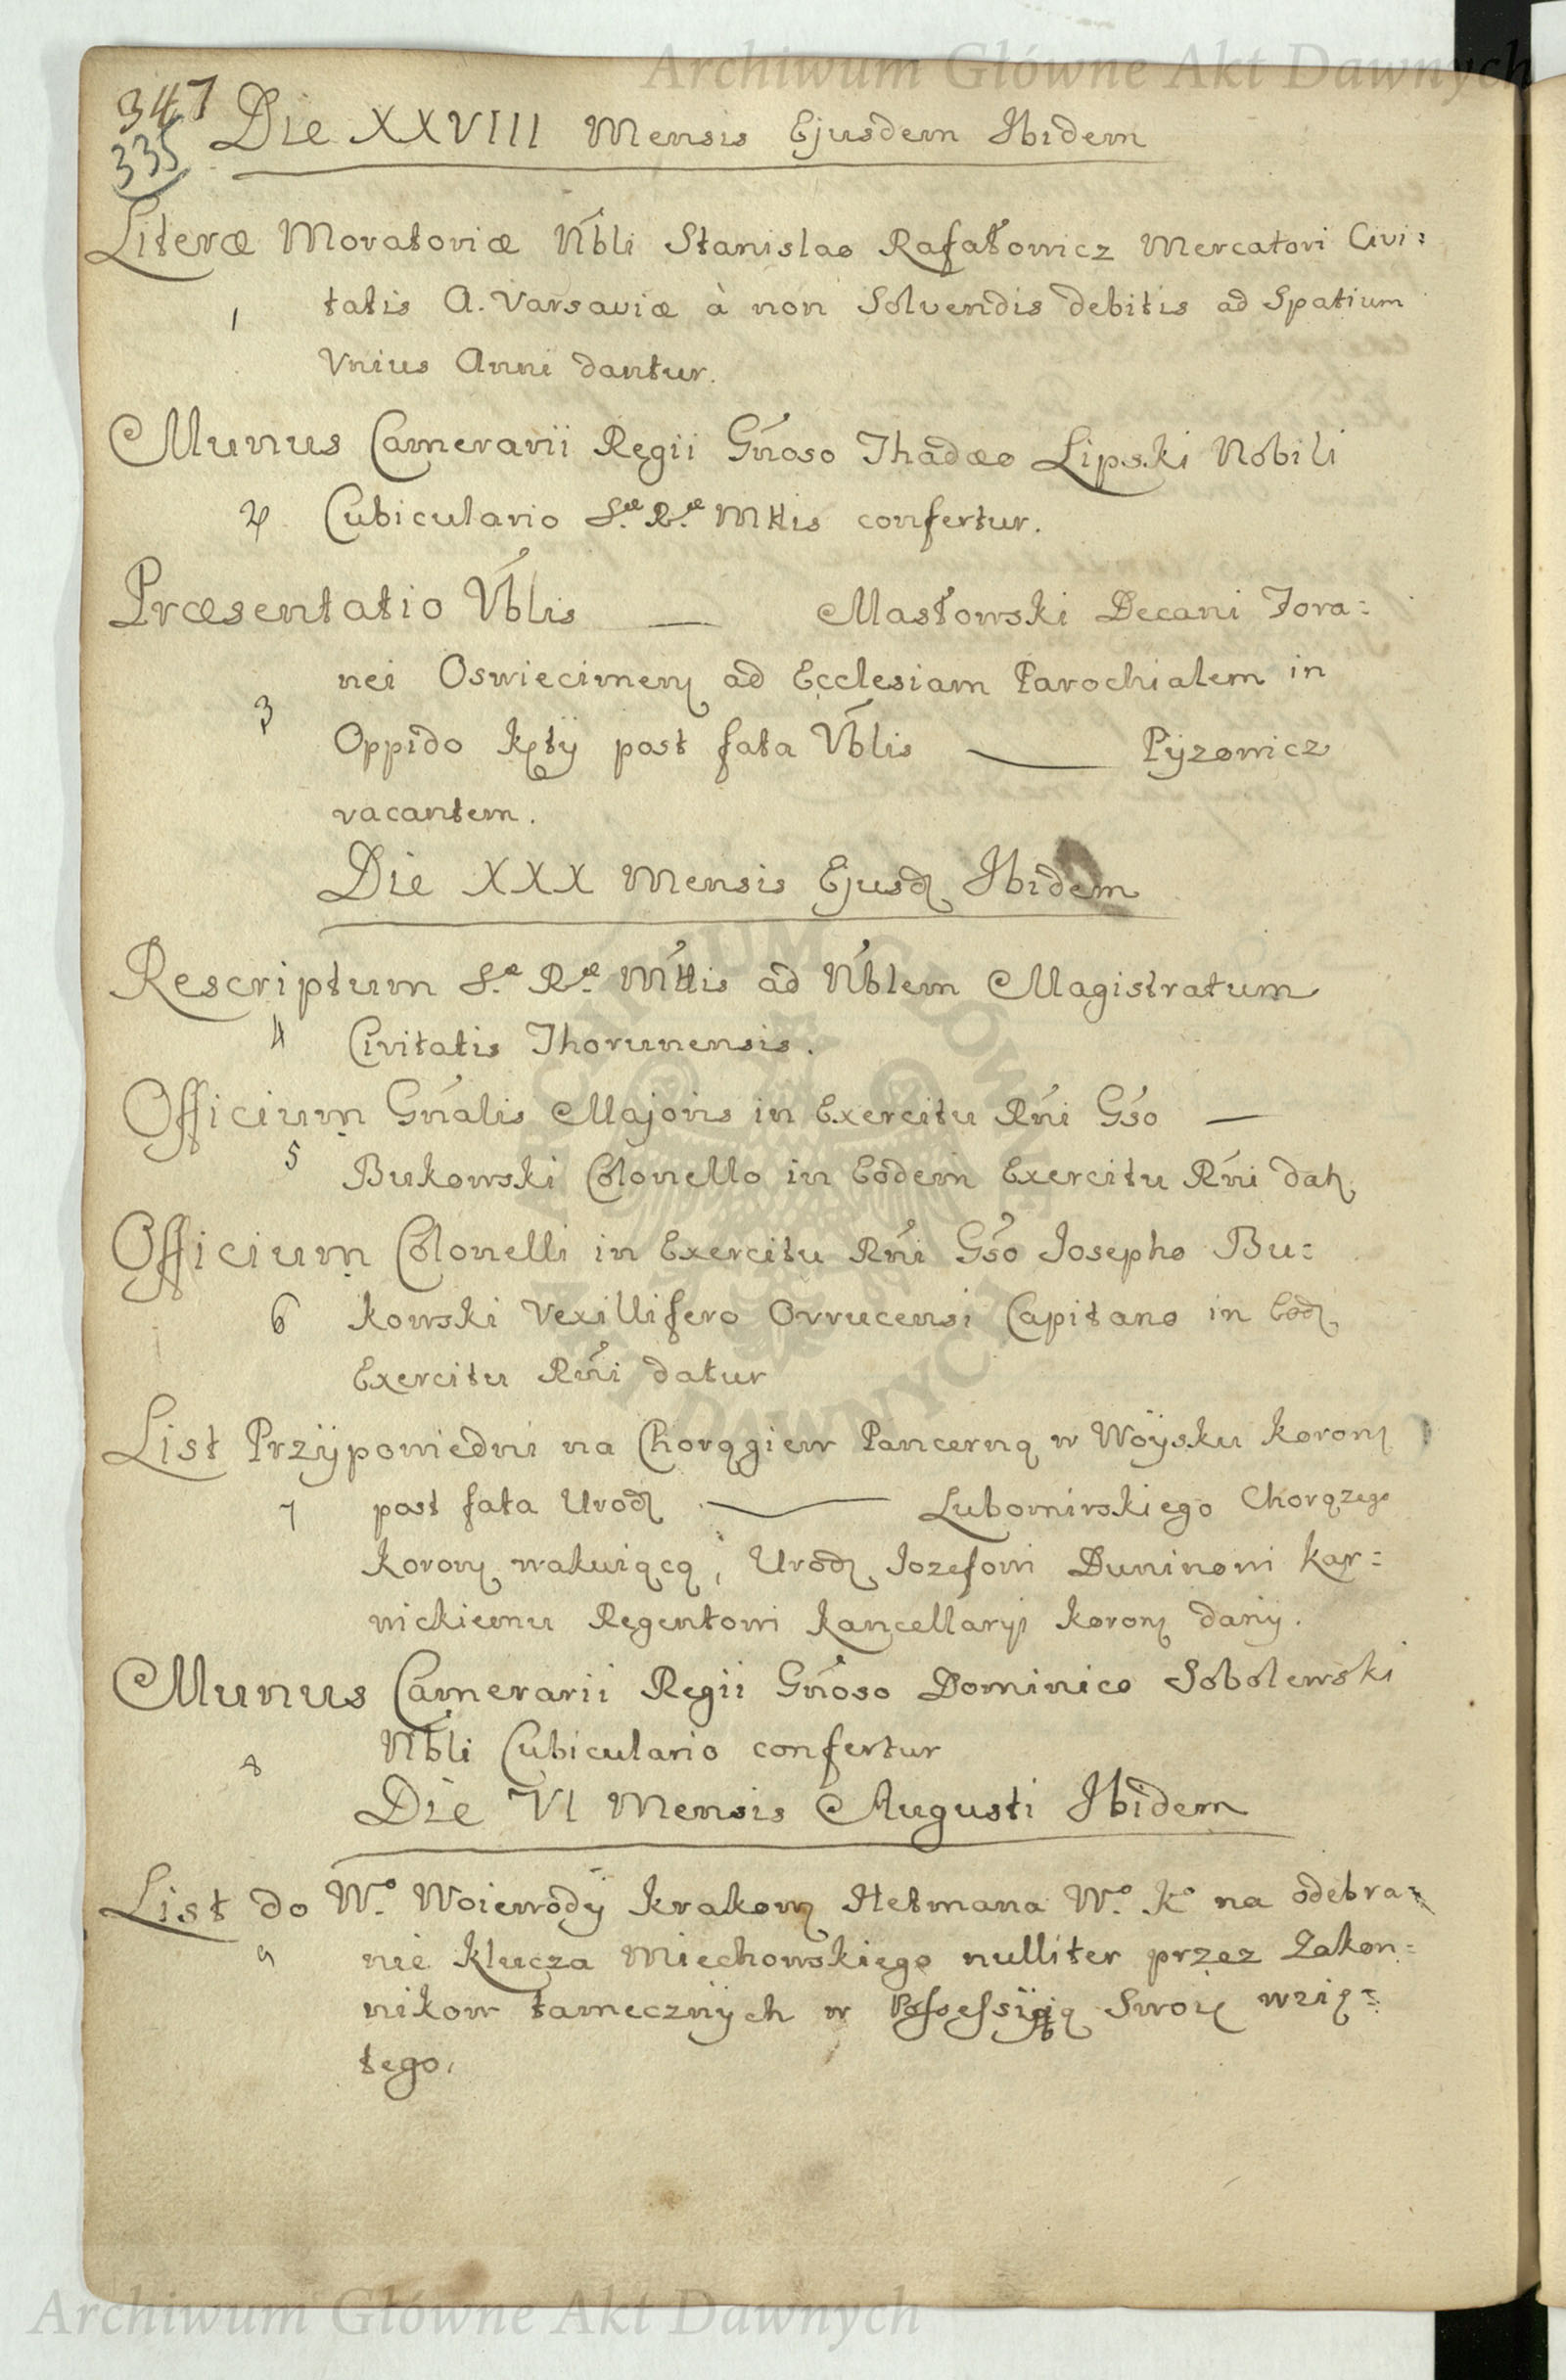 Archiwum Główne Akt Dawnych
347
335
Die XXVIII Mensis Ejusdem Ibidem
Literæ Moratoriæ Nbli Stanislao Rafałowicz Mercatori Civi:
1 tatis A. Varsaviæ à non Solvendis debitis ad Spatium
Vnius Anni dantur.
Munus Camerarii Regii Gnoso Thadæo Lipski Nobili
2 Cubiculario S.æ R.æ Mttis confertur.
Præsentatio Vblis — Masłowski Decani Fora:
nei Oswiecimen ad Ecclesiam Parochialem in
3 Oppido Kęty post fata Vblis — Pyzowicz
vacantem.
Die XXX Mensis Ejusd Ibidem
Rescriptum S.æ R.æ Mttis ad Nblem Magistratum
4 Civitatis Thorunensis.
Officium Gnalis Majoris in Exercitu Rni Gso —
5 Bukowski Colonello in Eodem Exercitu Rni dat
Officium Colonelli in Exercitu Rni Gso Josepho Bu:
6 kowski Vexillifero Ovrucensi Capitano in Eod
Exercitu Rni datur
List Przÿpowiedni na Chorągiew Pancerną w Woÿsku Koron
7 post fata Urod — Lubomirskiego Chorązego
Koron wakuiącą, Urod Jozefowi Duninowi Kar:
wickiemu Regentowi Kancellaryi Koron danÿ.
Munus Camerarii Regii Gnoso Dominico Sobolewski
8 Nbli Cubiculario confertur
Die VI Mensis Augusti Ibidem
List do W.o Woiewodÿ Krakow Hetmana W.o K.o na odebra:
9 nie Klucza Miechowskiego nulliter przez Zakon:
nikow tamecznÿch w Swoię wzię:
tego.
Archiwum Główne Akt Dawnych